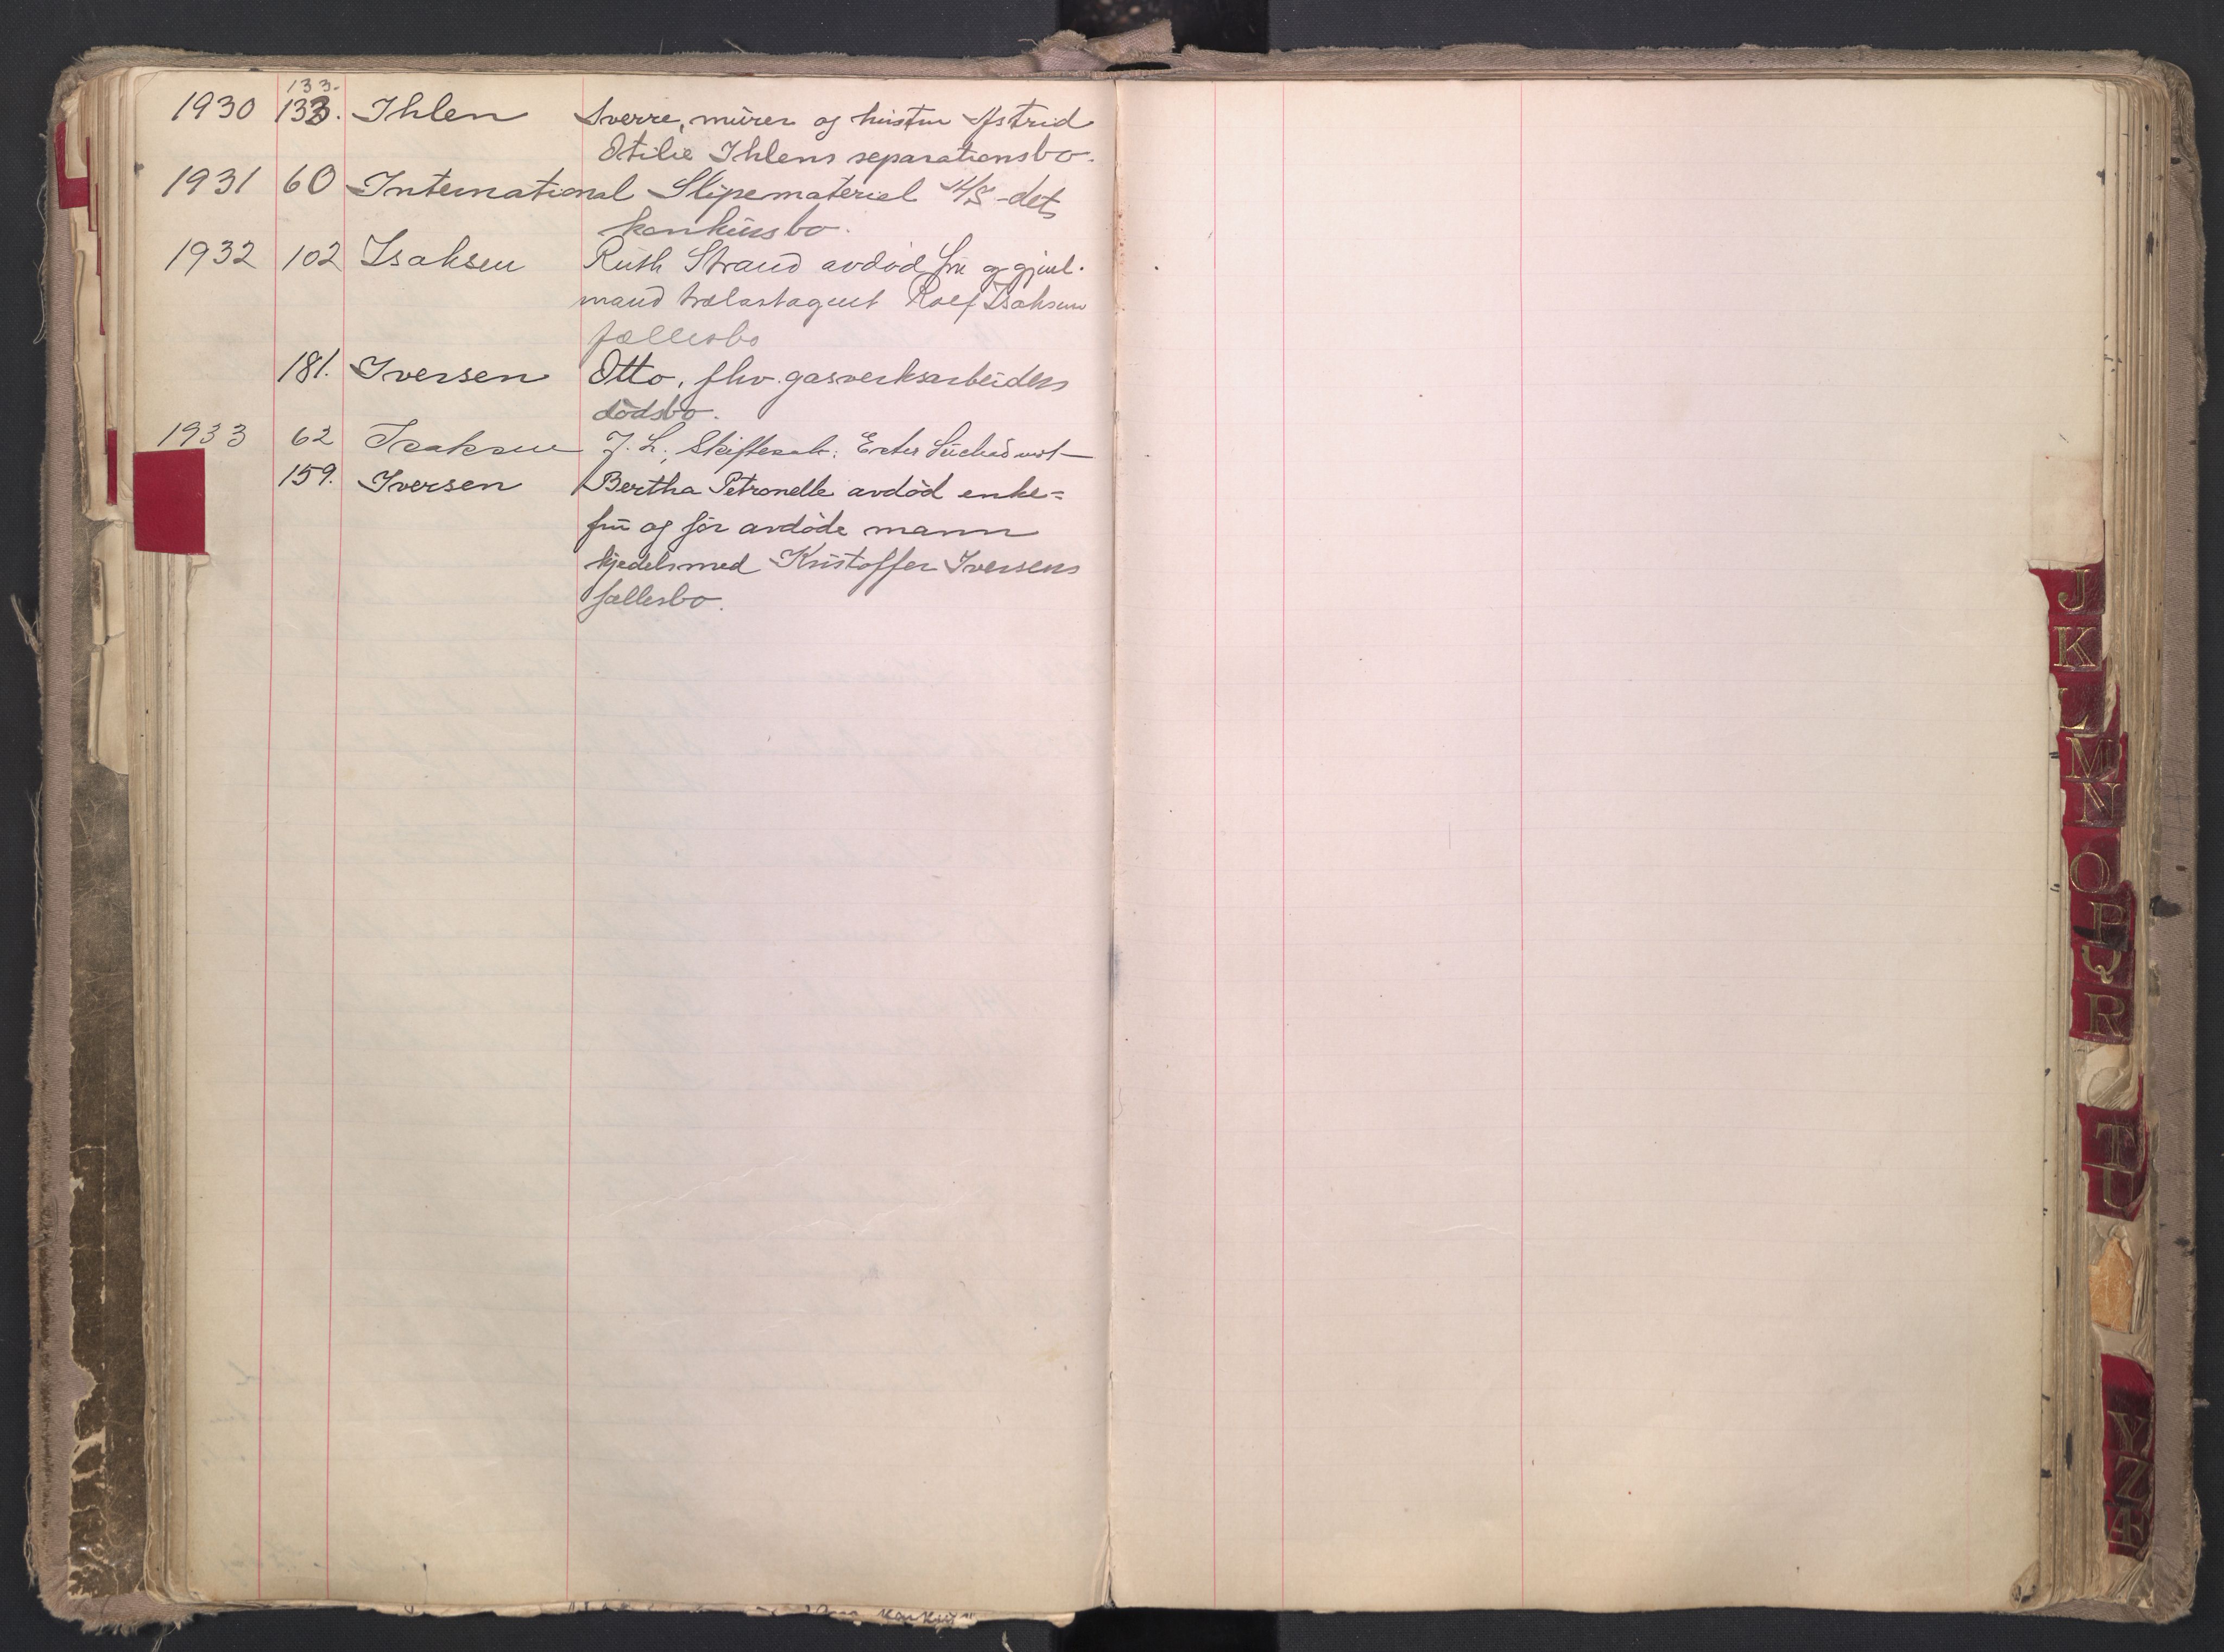 133.
1930 133. Ihlen Sverre, murer og hustru Astrid
Otilie Ihlens separationsbo.
1931 60 International Slipemateriel A/S - dets
konkursbo.
1932 102 Isaksen Ruth Strand avdød fru og gjenl.
mand trælastagent Rolf Isaksens
fællesbo
181. Iversen Otto, fhv. gasverksarbeiders
dödsbo.
1933 62 Isaksen J. L., Skiftesak: Ester mot
159. Iversen Bertha Petronelle avdöd enke=
fru og før avdøde mann
kjedelsmed Kristoffer Iversens
fellesbo.
J
K
L
M
N
O
P
Q
R
T
U
Y
Z
Æ